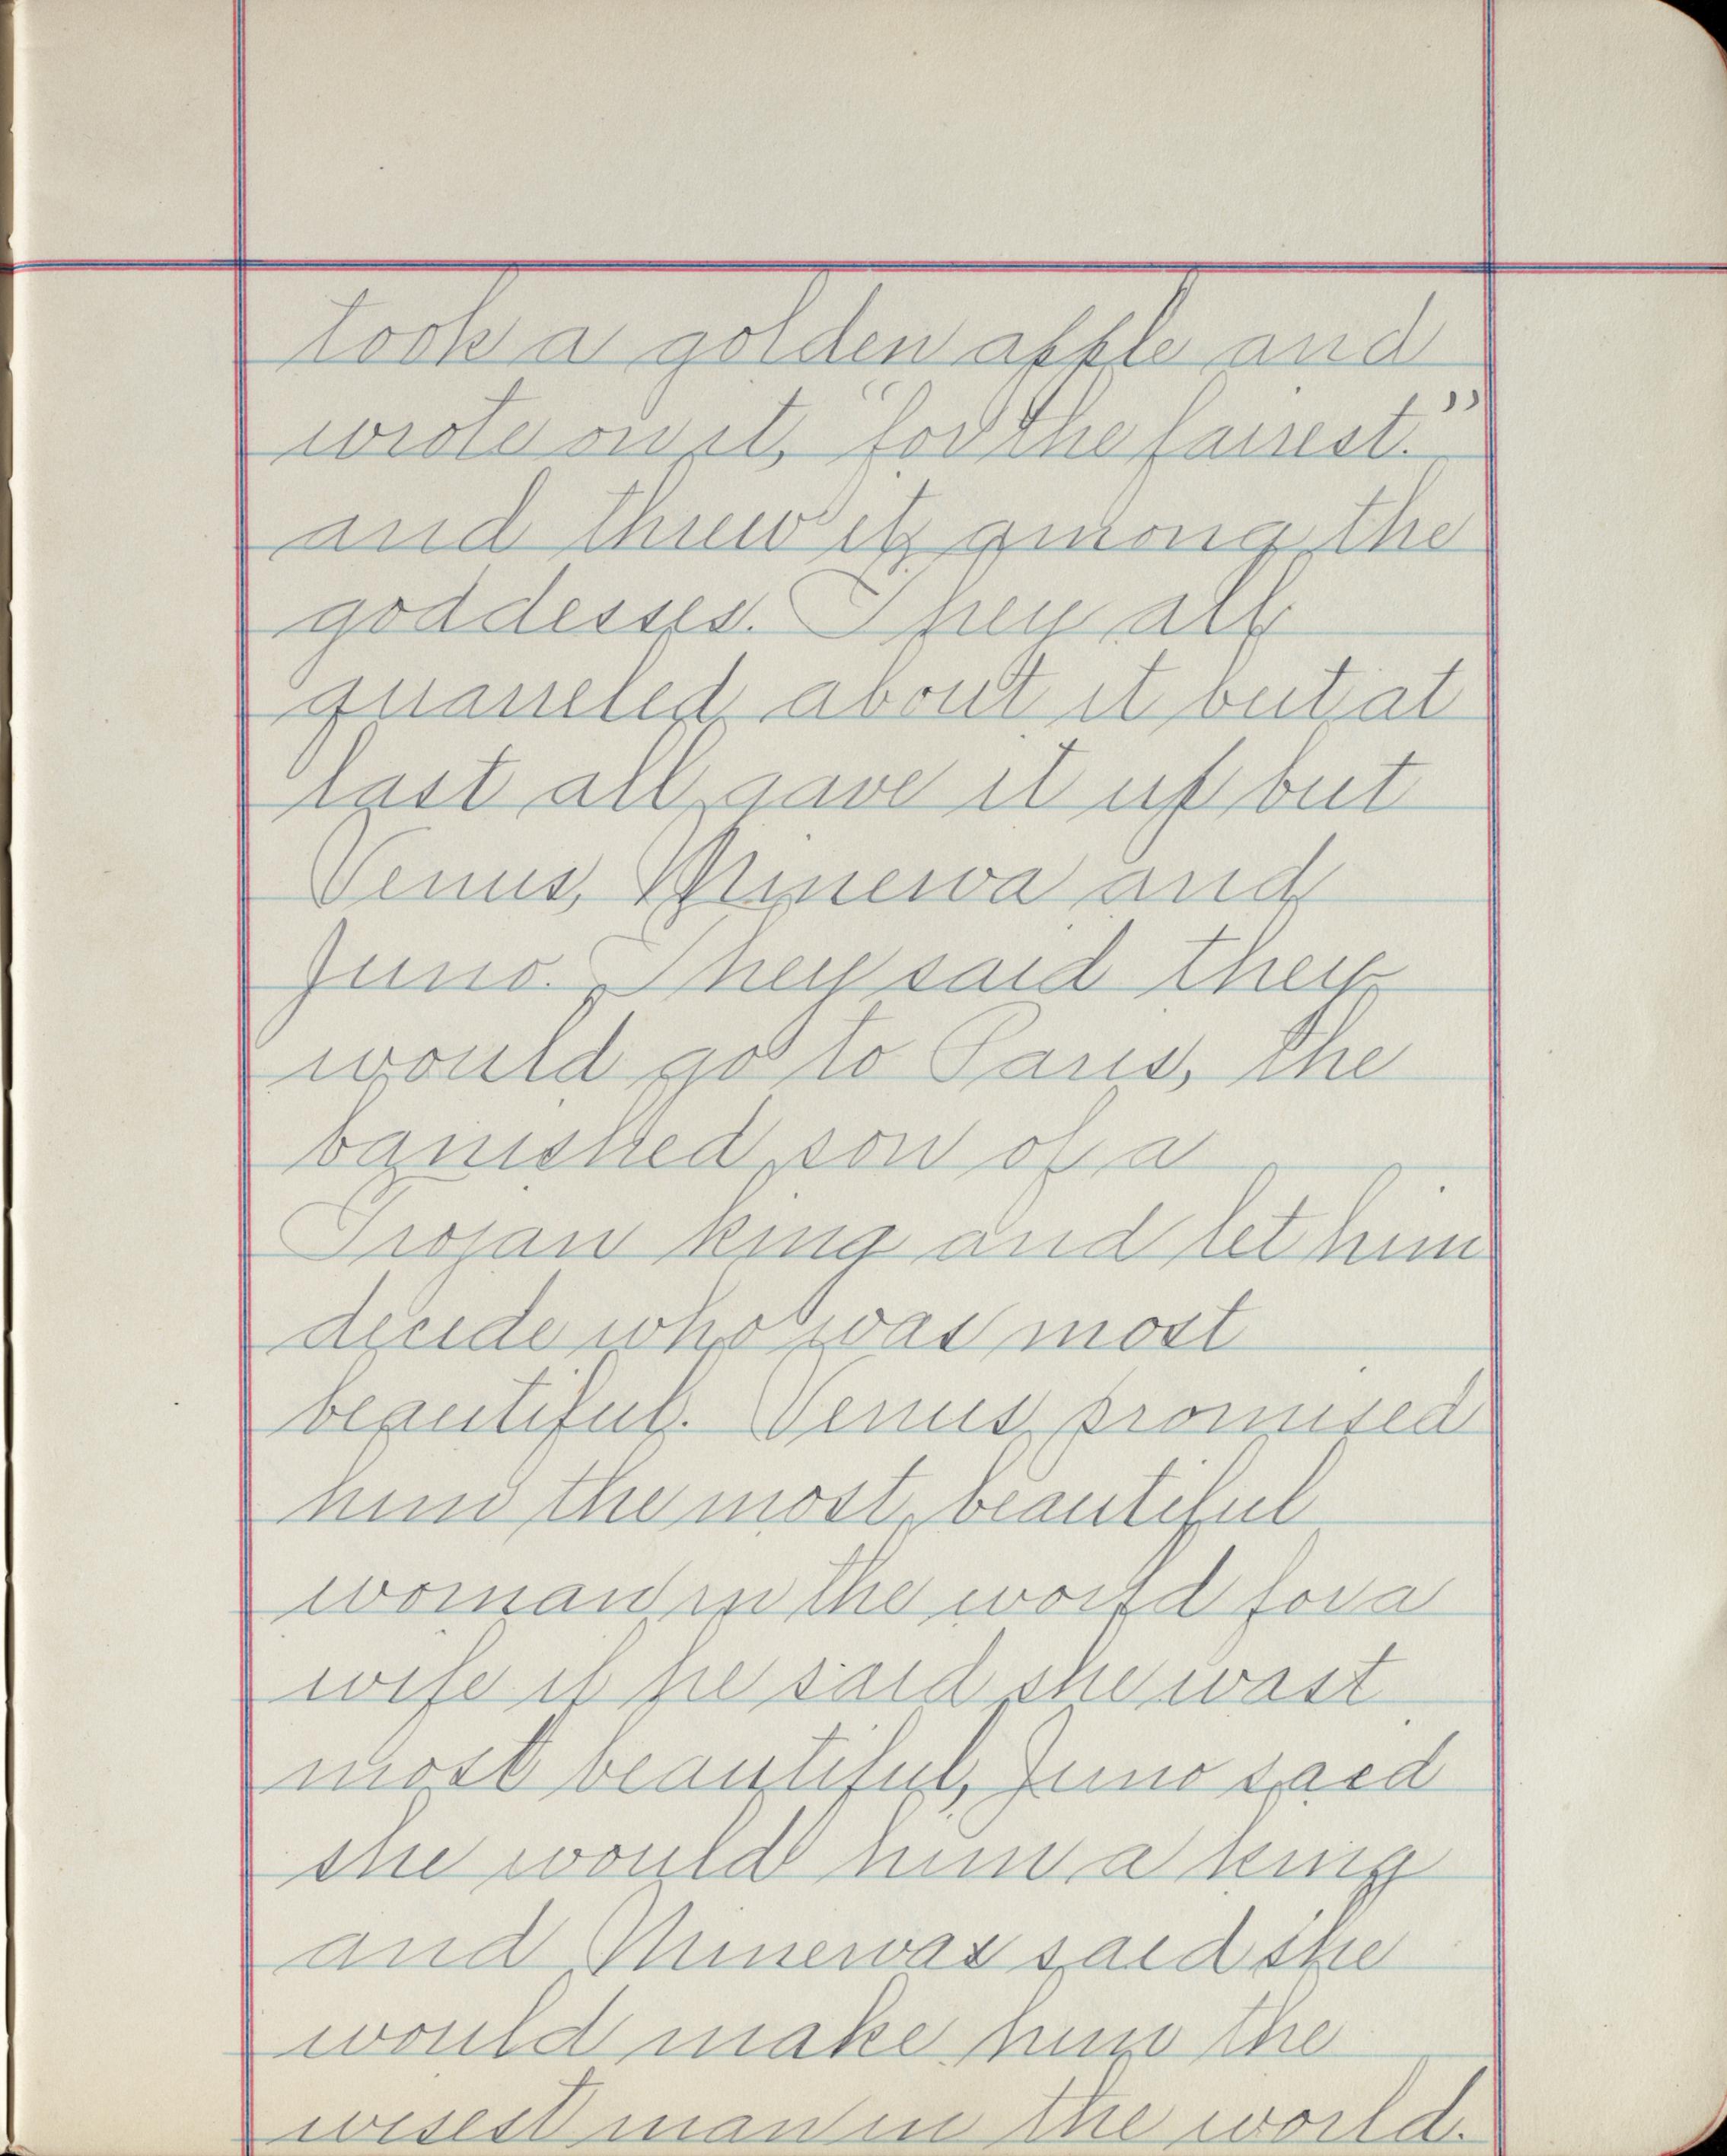 took a golden apple and
wrote on it, "for the fairest."
and threw it among the
goddesses. They all
quarreled about it but at
last all gave it up but
Venus, Minerva and
Juno. They said they
would go to Paris, the
banished son of a
Trojan king and let him
decide who was most
beautiful. Venus promised
him the most beautiful
woman in the world for a
wife if he said she wast
most beautiful, Juno said
she would him a king
and Minervas said she
would make him the
wisest man in the world.